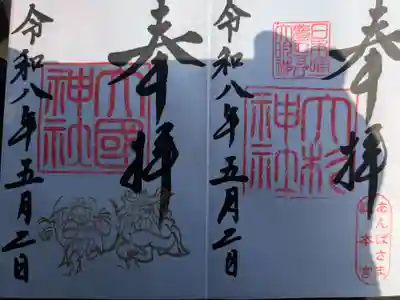 奉拝
大杉神社
あんばさま
総本宮
令和八年五月二日
奉拝
大國神社
令和八年五月二日